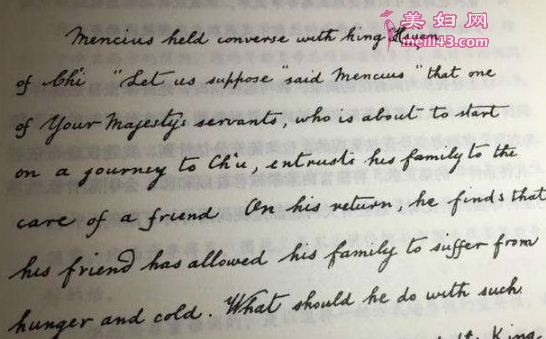 美妇网
meifu43.com
Mencius held converse with king Hsuen
of Chi "Let us suppose" said Mencius "that one
of Your Majesty's servants, who is about to start
on a journey to Ch'u, entrusts his family to the
care of a friend On his return, he finds that
his friend has allowed his family to suffer from
hunger and cold. What should he do with such
King.